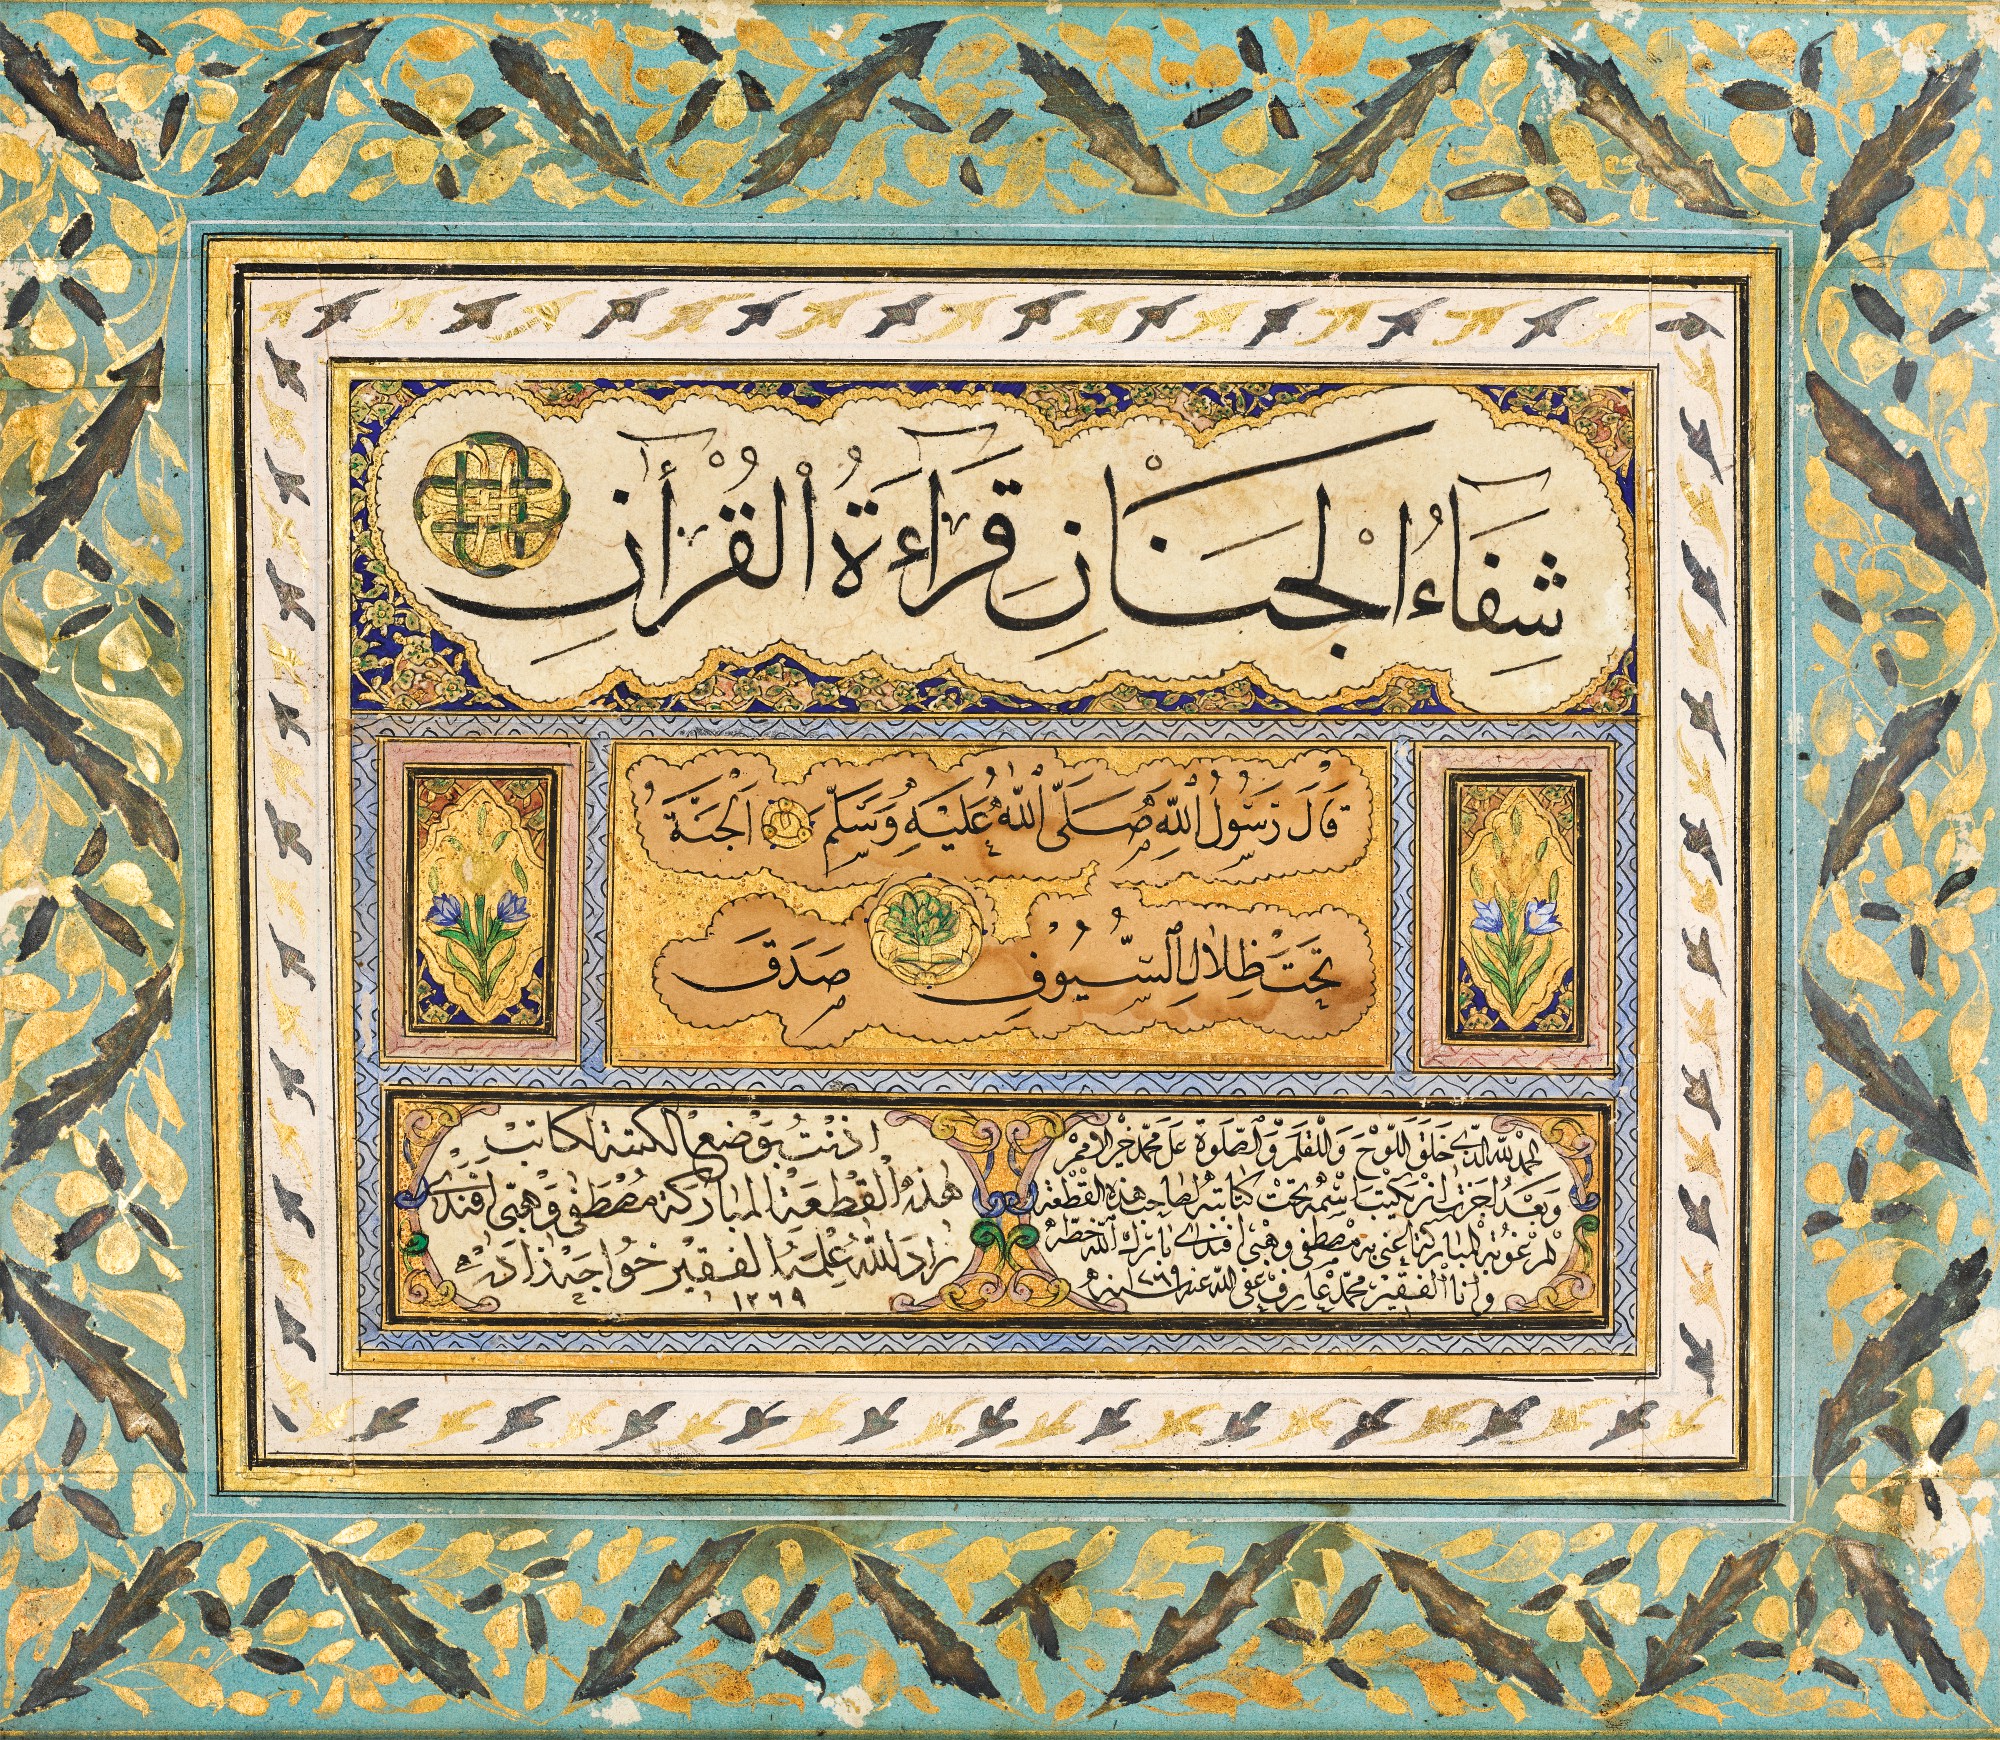 شِفَاءُ الْجَنَانِ قِرَاءَةُ الْقُرْأٰنِ
قَالَ رَسُولُ اللّٰهِ صَلَّى اللّٰهُ عَلَيْهِ وَسَلَّمَ الْجَنَّةُ
تَحْتَ ظِلَالِ السُّيُوفِ صَدَقَ
الحمد لله الذى خلق اللوح والقلم والصلوة على محمد خير الامم
وبعد اجزت ان يكتب اسمه تحت كتابته لصاحب هذه القطعة
المرغوبة المباركة اعنى به مصطفى وهبى افندى الله
وانا الفقير محمد عارف عفى الله عنه سنه ١٢٦٩
اذنت بوضع الكتبة لكاتب
هذه القطعة المباركة مصطفى وهبى افندى
زاد الله علمه الفقير خواجه زاده
١٢٦٩